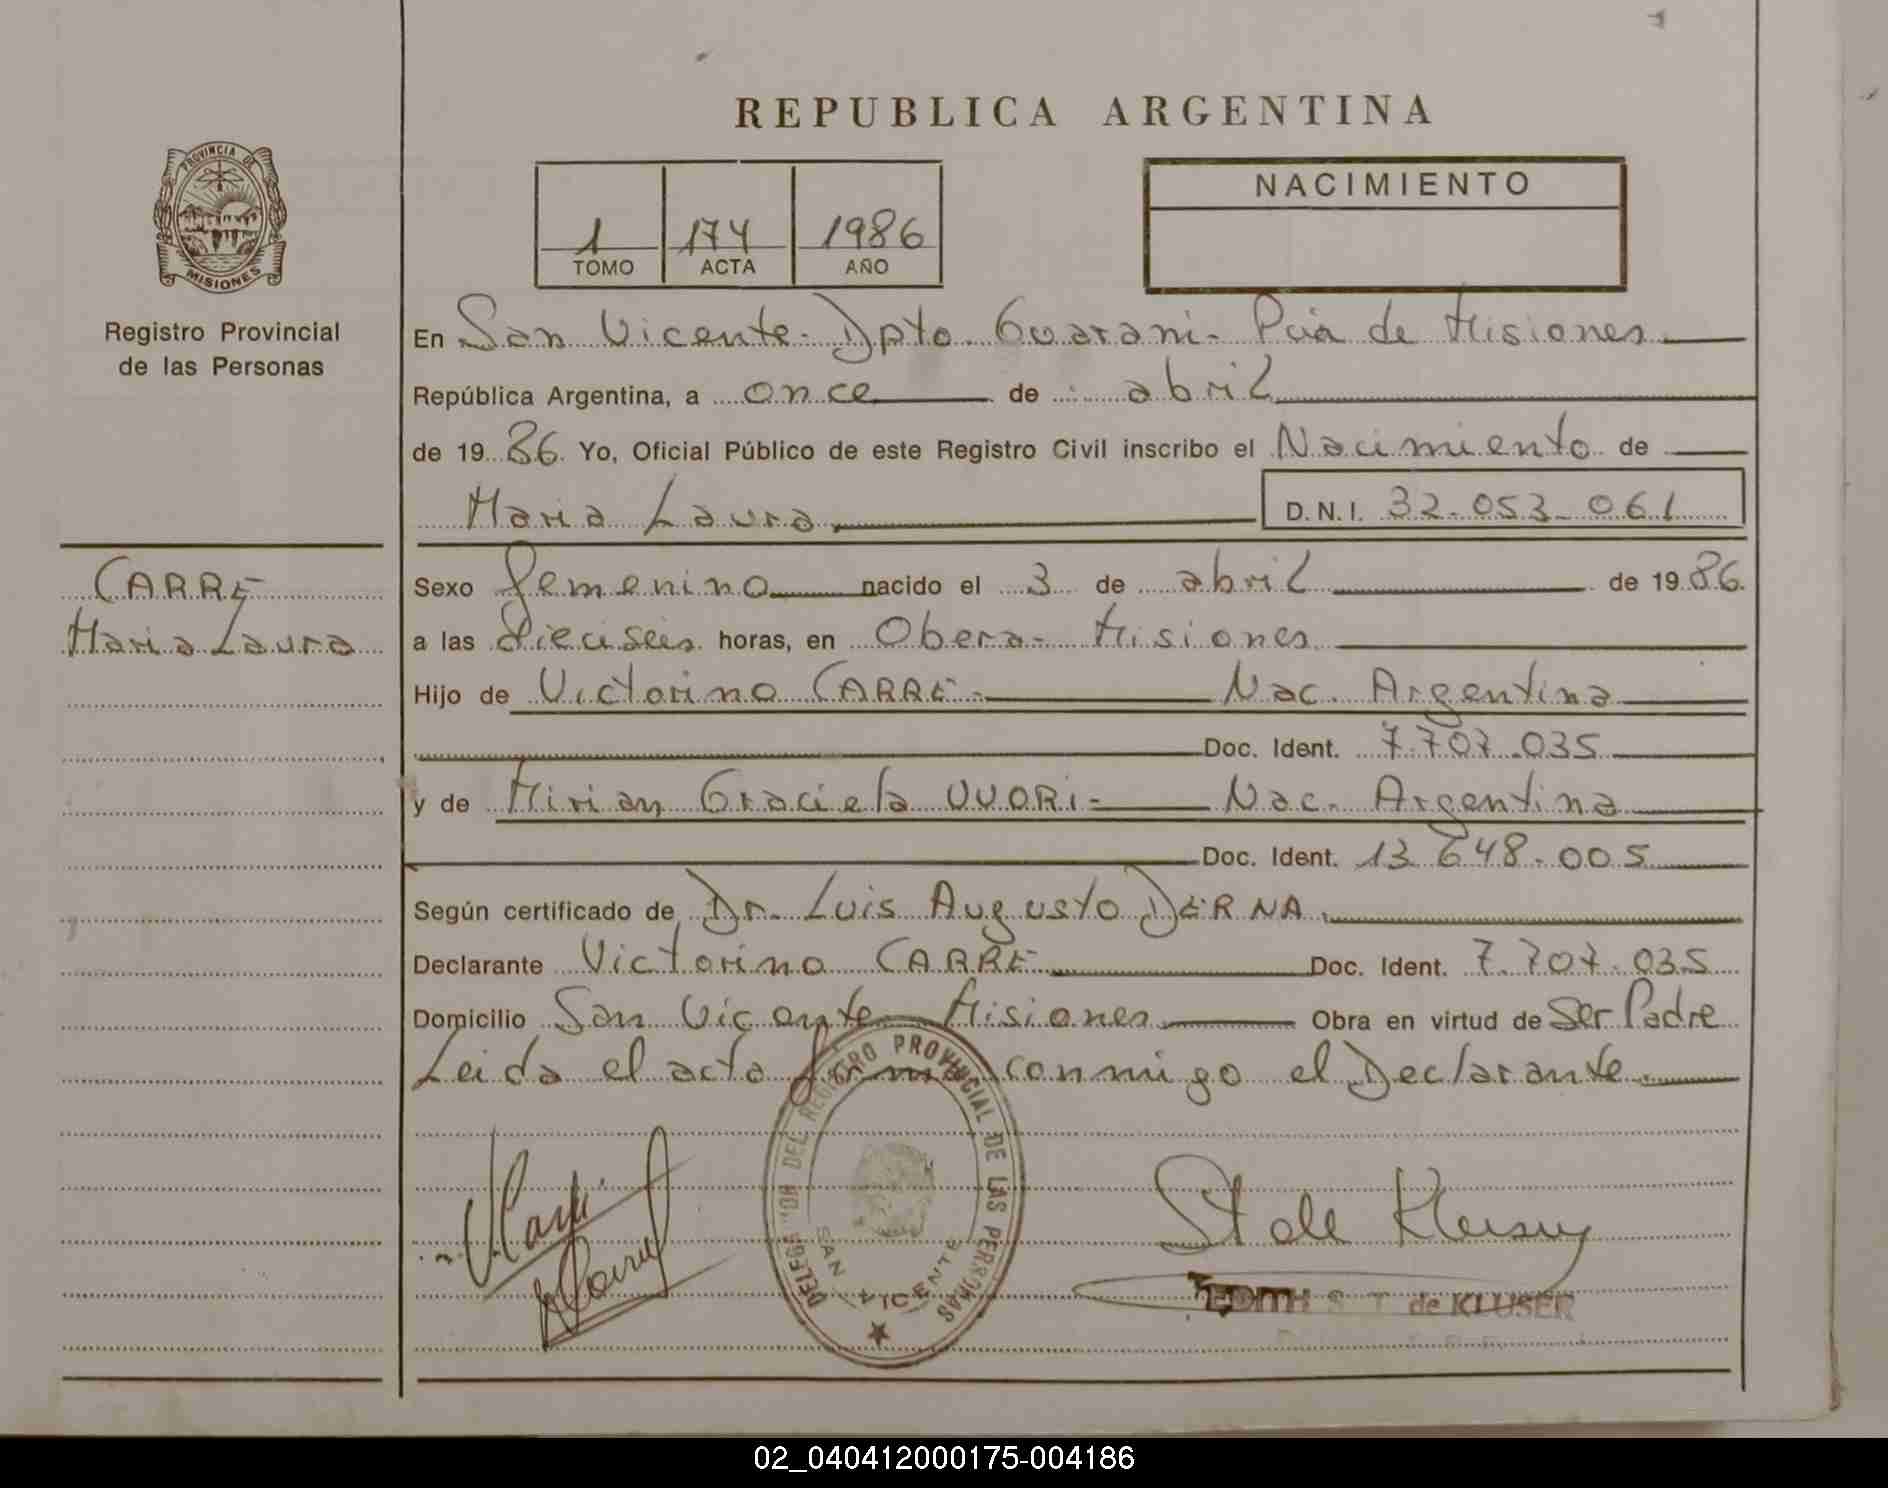 REPUBLICA ARGENTINA
PROVINCIA DE
MISIONES
Registro Provincial
de las Personas
1 174 1986
TOMO ACTA AÑO
NACIMIENTO
En San Vicente - Dpto. Guarani - Pcia de Misiones
República Argentina, a once de abril
de 1986 Yo, Oficial Público de este Registro Civil inscribo el Nacimiento de
Maria Laura D.N.I. 32-053-061
CARRE
Maria Laura
Sexo femenino nacido el 3 de abril de 1986.
a las dieciseis horas, en Obera - Misiones
Hijo de Victorino CARRE - Nac. Argentina
Doc. Ident. 7.707.035
y de Mirian Graciela VUORI - Nac. Argentina
Doc. Ident. 13.648.005
Según certificado de Dr. Luis Augusto DERNA
Declarante Victorino CARRE Doc. Ident. 7.707.035
Domicilio San Vicente Misiones Obra en virtud de Ser Padre
Leida el acta firma conmigo el Declarante
DELEGACION DEL REGISTRO PROVINCIAL DE LAS PERSONAS
SAN VICENTE
EDITH S. T. de KLUSER
02_040412000175-004186